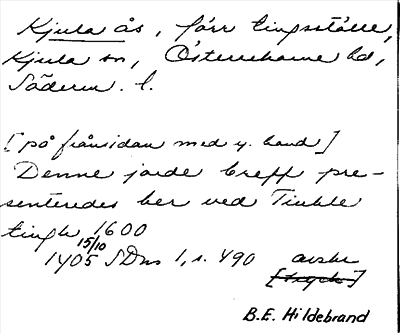 Kjula ås, förr tingsställe,
Kjula sn, Österrekarne hd,
Söderm. l.
[på frånsidan med y. hand]
Denne jorde breff pre-
senteredes her ved Tinkle
tingh 1600
15/10
1405 SDns 1, s. 490 avskr
[tryck]
B.E. Hildebrand